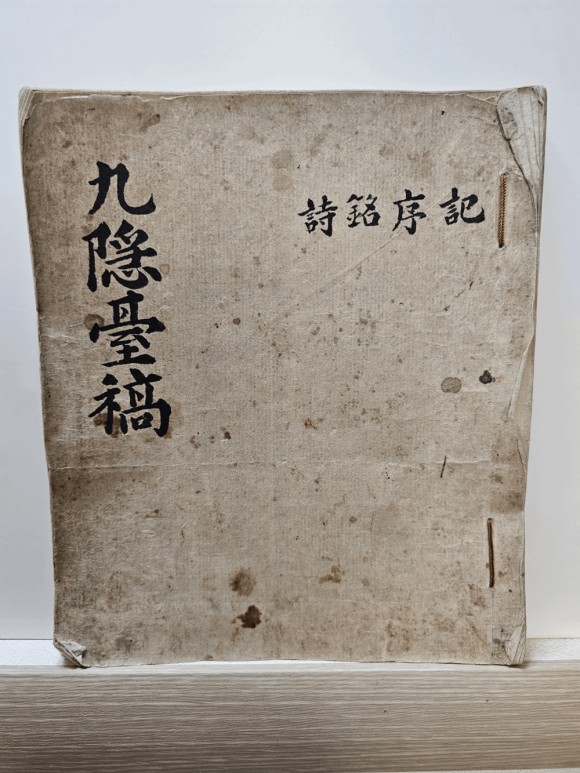 九隱臺稿
記序銘詩